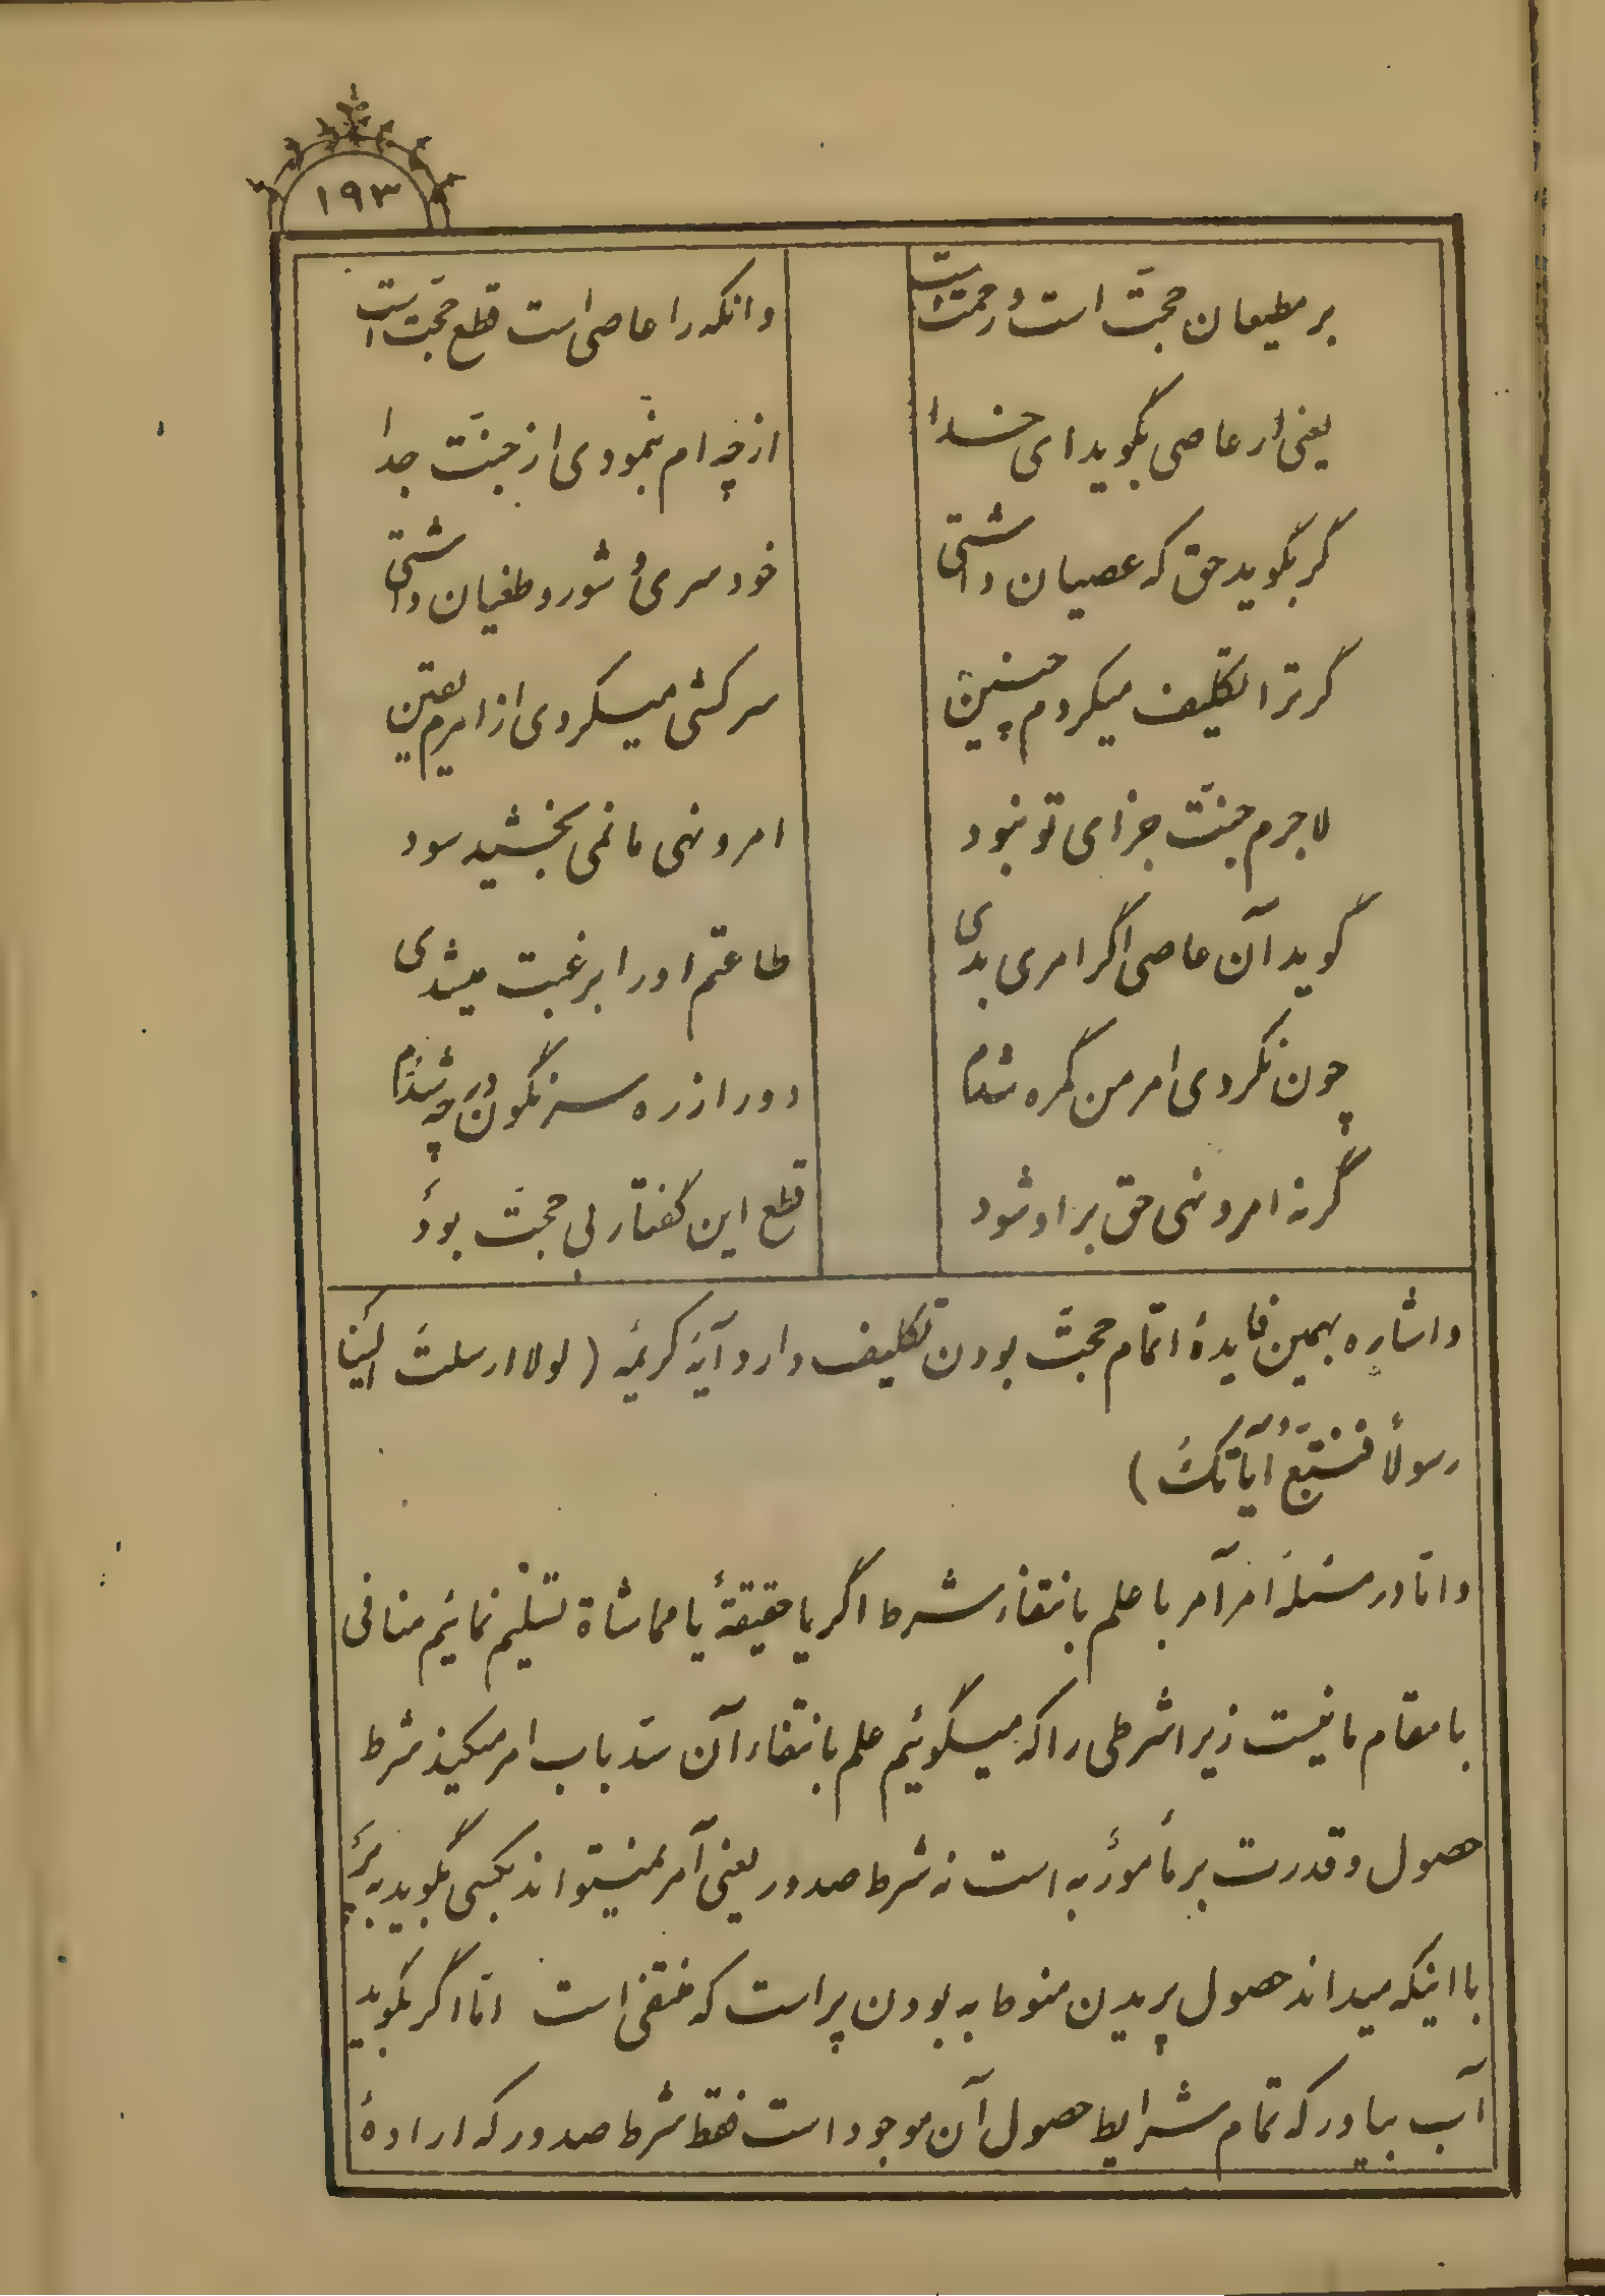 ۱۹۳
بر مطیعان حجّت است و رحمت است    وانکه را عاصی است قطع حجّت است
یعنی ار عاصی بگوید ای خدا    از چه ام ننمودی از جنّت جدا
گر بگوید حق که عصیان داشتی    خودسری و شور و طغیان داشتی
گر ترا تکلیف میکردم چنین    سرکشی میکردی از امرم یقین
لاجرم جنّت جزای تو نبود    امر و نهی ما نمی بخشید سود
گوید آن عاصی اگر امری بدی    طاعتم او را برغبت میشدی
چون نکردی امر من گمره شدم    دور از ره سرنگون در چه شدم
گر نه امر و نهی حق بر او شود    قطع این گفتار بی حجّت بود
و اشاره بهمین فایدهٔ اتمام حجّت بودن تکلیف دارد آیهٔ کریمه (لولا ارسلت الینا
رسولاً فنتّبع آیاتک)
و امّا در مسئلهٔ امر آمر با علم بانتفاء شرط اگر یا حقیقةً یا مماشاة تسلیم نمائیم منافی
با مقام ما نیست زیرا شرطی را که میگوئیم علم بانتفاء آن سدّ باب امر میکند شرط
حصول و قدرت بر مأموربه است نه شرط صدور یعنی آمر نمیتواند بکسی بگوید بپر
با اینکه میداند حصول پریدن منوط به بودن پر است که منتفی است امّا اگر بگوید
آب بیاور که تمام شرایط حصول آن موجود است فقط شرط صدور که ارادهٔ